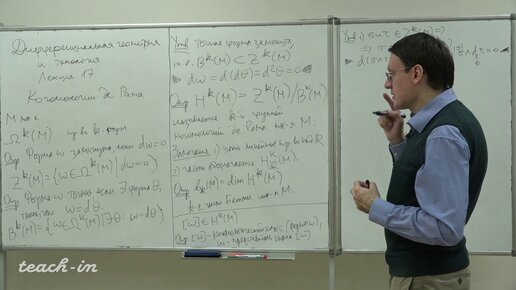 Дифференциальная геометрия
и топология
Лекция 17
Когомологии де Рама
M мн-е
Ω^k(M) пр-во k-форм
Опр Форма ω замкнута если dω=0
Z^k(M) = {ω∈Ω^k(M) | dω=0}
Опр Форма ω точна если ∃ форма θ,
такая что ω=dθ
B^k(M) = {ω∈Ω^k(M) | ∃θ: ω=dθ}
Утв Точная форма замкнута,
т.е. B^k(M) ⊂ Z^k(M)
dω = d(dθ) = d²θ = 0
Опр H^k(M) = Z^k(M)/B^k(M)
называется k-й группой
когомологий де Рама мн-я M.
Замечание 1) это линейное пр-во над ℝ
2) часто обозначается H^k_{DR}(M).
Опр b_k(M) = dim H^k(M)
k-е число Бетти мн-я M.
[ω]∈H^k(M)
Опр [ω] - когомологический класс (формы ω),
ω - представитель класса [ω]
teach-in